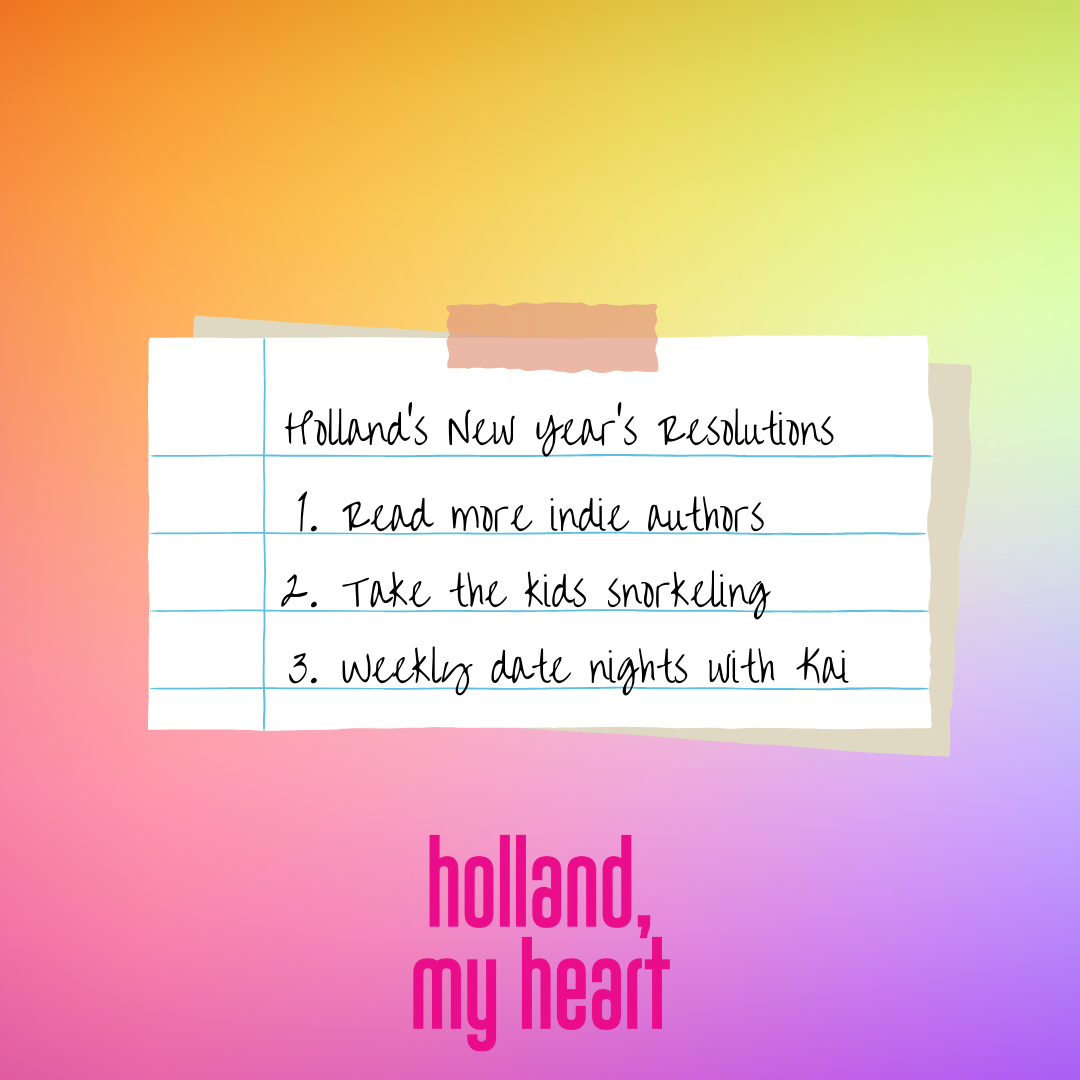 Holland's New Year's Resolutions
1. Read more indie authors
2. Take the kids snorkeling
3. Weekly date nights with Kai
holland,
my heart